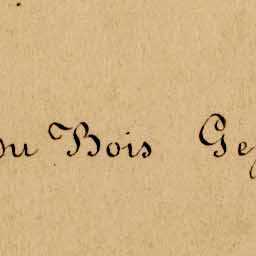 Du Bois Ge